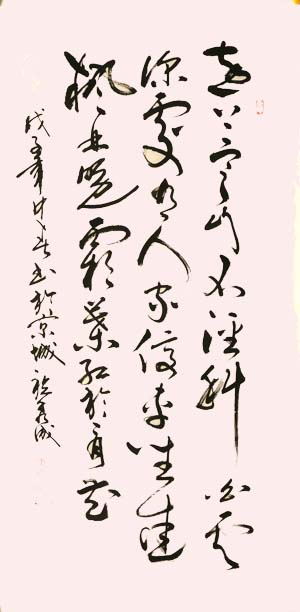 遠上寒山石徑斜白雲
深處有人家停車坐愛
楓林晚霜葉紅於二月花
戊子年中书於京城